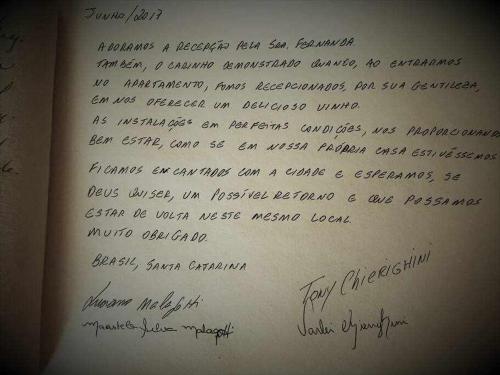 JUNHO/2017
ADORAMOS A RECEPÇÃO PELA SRA. FERNANDA.
TAMBÉM, O CARINHO DEMONSTRADO QUANDO, AO ENTRARMOS
NO APARTAMENTO, FOMOS RECEPCIONADOS, POR SUA GENTILEZA,
EM NOS OFERECER UM DELICIOSO VINHO.
AS INSTALAÇÕES EM PERFEITAS CONDIÇÕES, NOS PROPORCIONANDO
BEM ESTAR, COMO SE EM NOSSA PRÓPRIA CASA ESTIVÉSSEMOS
FICAMOS ENCANTADOS COM A CIDADE E ESPERAMOS, SE
DEUS QUISER, UM POSSÍVEL RETORNO E QUE POSSAMOS
ESTAR DE VOLTA NESTE MESMO LOCAL.
MUITO OBRIGADO.
BRASIL, SANTA CATARINA
TONY CHIERIGHINI
Luciano Malagotti
Silva Malagotti